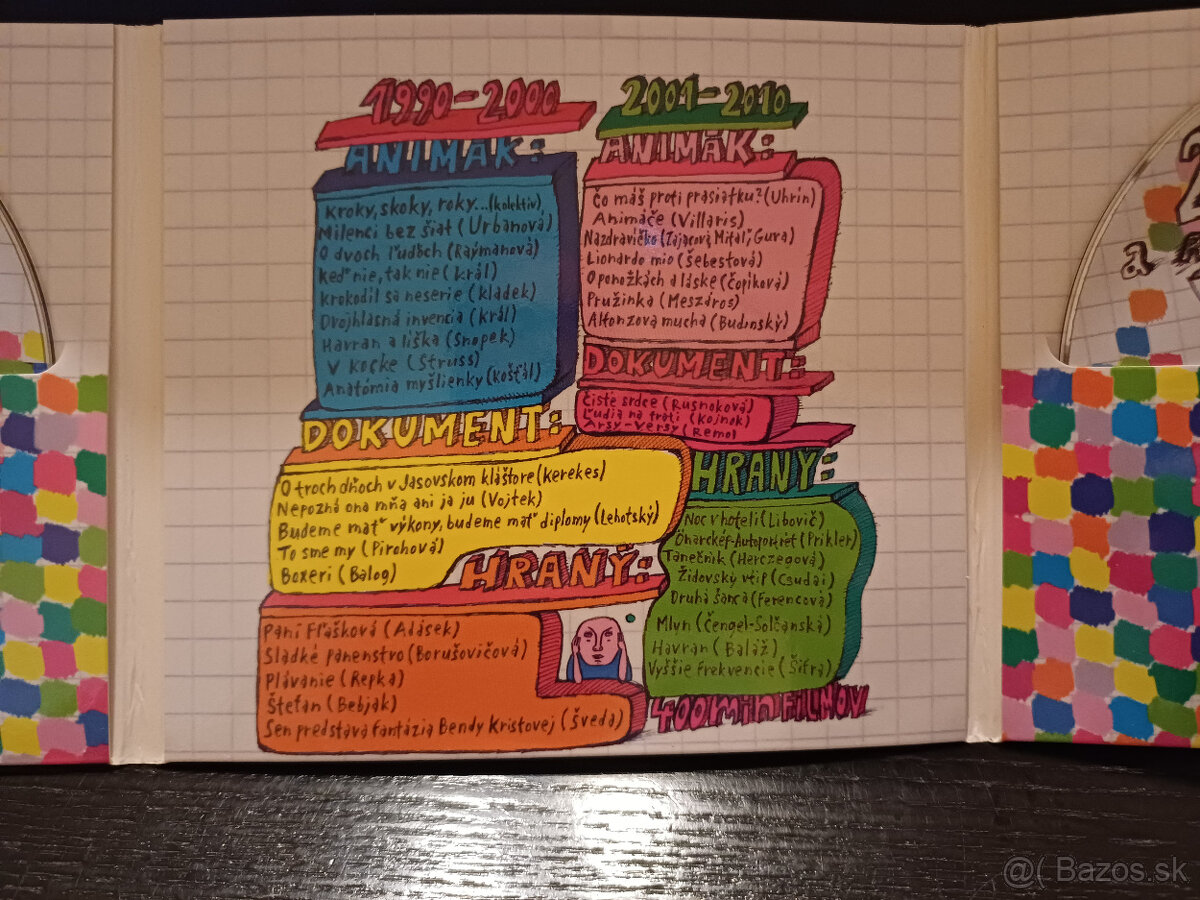 1990-2000
ANIMÁK:
Kroky, skoky, roky...(kolektív)
Milenci bez šiat (Urbanová)
O dvoch ľuďoch (Raýmanová)
Keď nie, tak nie (Král)
Krokodíl sa neserie (Kládek)
Dvojhlasná invencia (Král)
Havran a líška (Snopek)
V kocke (Struss)
Anatómia myšlienky (Košťál)
DOKUMENT:
O troch dňoch v Jasovskom kláštore (Kerekes)
Nepozná ona mňa ani ja ju (Vojtek)
Budeme mať výkony, budeme mať diplomy (Lehotský)
To sme my (Pirohová)
Boxeri (Balog)
HRANÝ:
Pani Fľašková (Adásek)
Sladké panenstvo (Borušovičová)
Plávanie (Repka)
Štefan (Bebjak)
Sen predstáva fantázia Bendy Kristovej (Šveda)
2001-2010
ANIMÁK:
Čo máš proti prasiatku? (Uhrín)
Animáče (Villaris)
Nazdravíčko (Zajacová, Mitaľ, Gura)
Lionardo mio (Šebestová)
O ponožkách a láske (Čopíková)
Pružinka (Meszáros)
Alfonzova mucha (Budinský)
DOKUMENT:
Čisté srdce (Rusnoková)
Ľudia na trati (Kojnok)
Arsy-Versy (Remo)
HRANÝ:
Noc v hoteli (Libovič)
Onarckép-Autoportrét (Prikler)
Tanečník (Herczegová)
Židovský vtip (Csudai)
Druhá šanca (Ferencová)
Mlyn (Čengel-Solčanská)
Havran (Baláž)
Vyššie frekvencie (Šifra)
400 min FILMOV
2
a
@( Bazos.sk